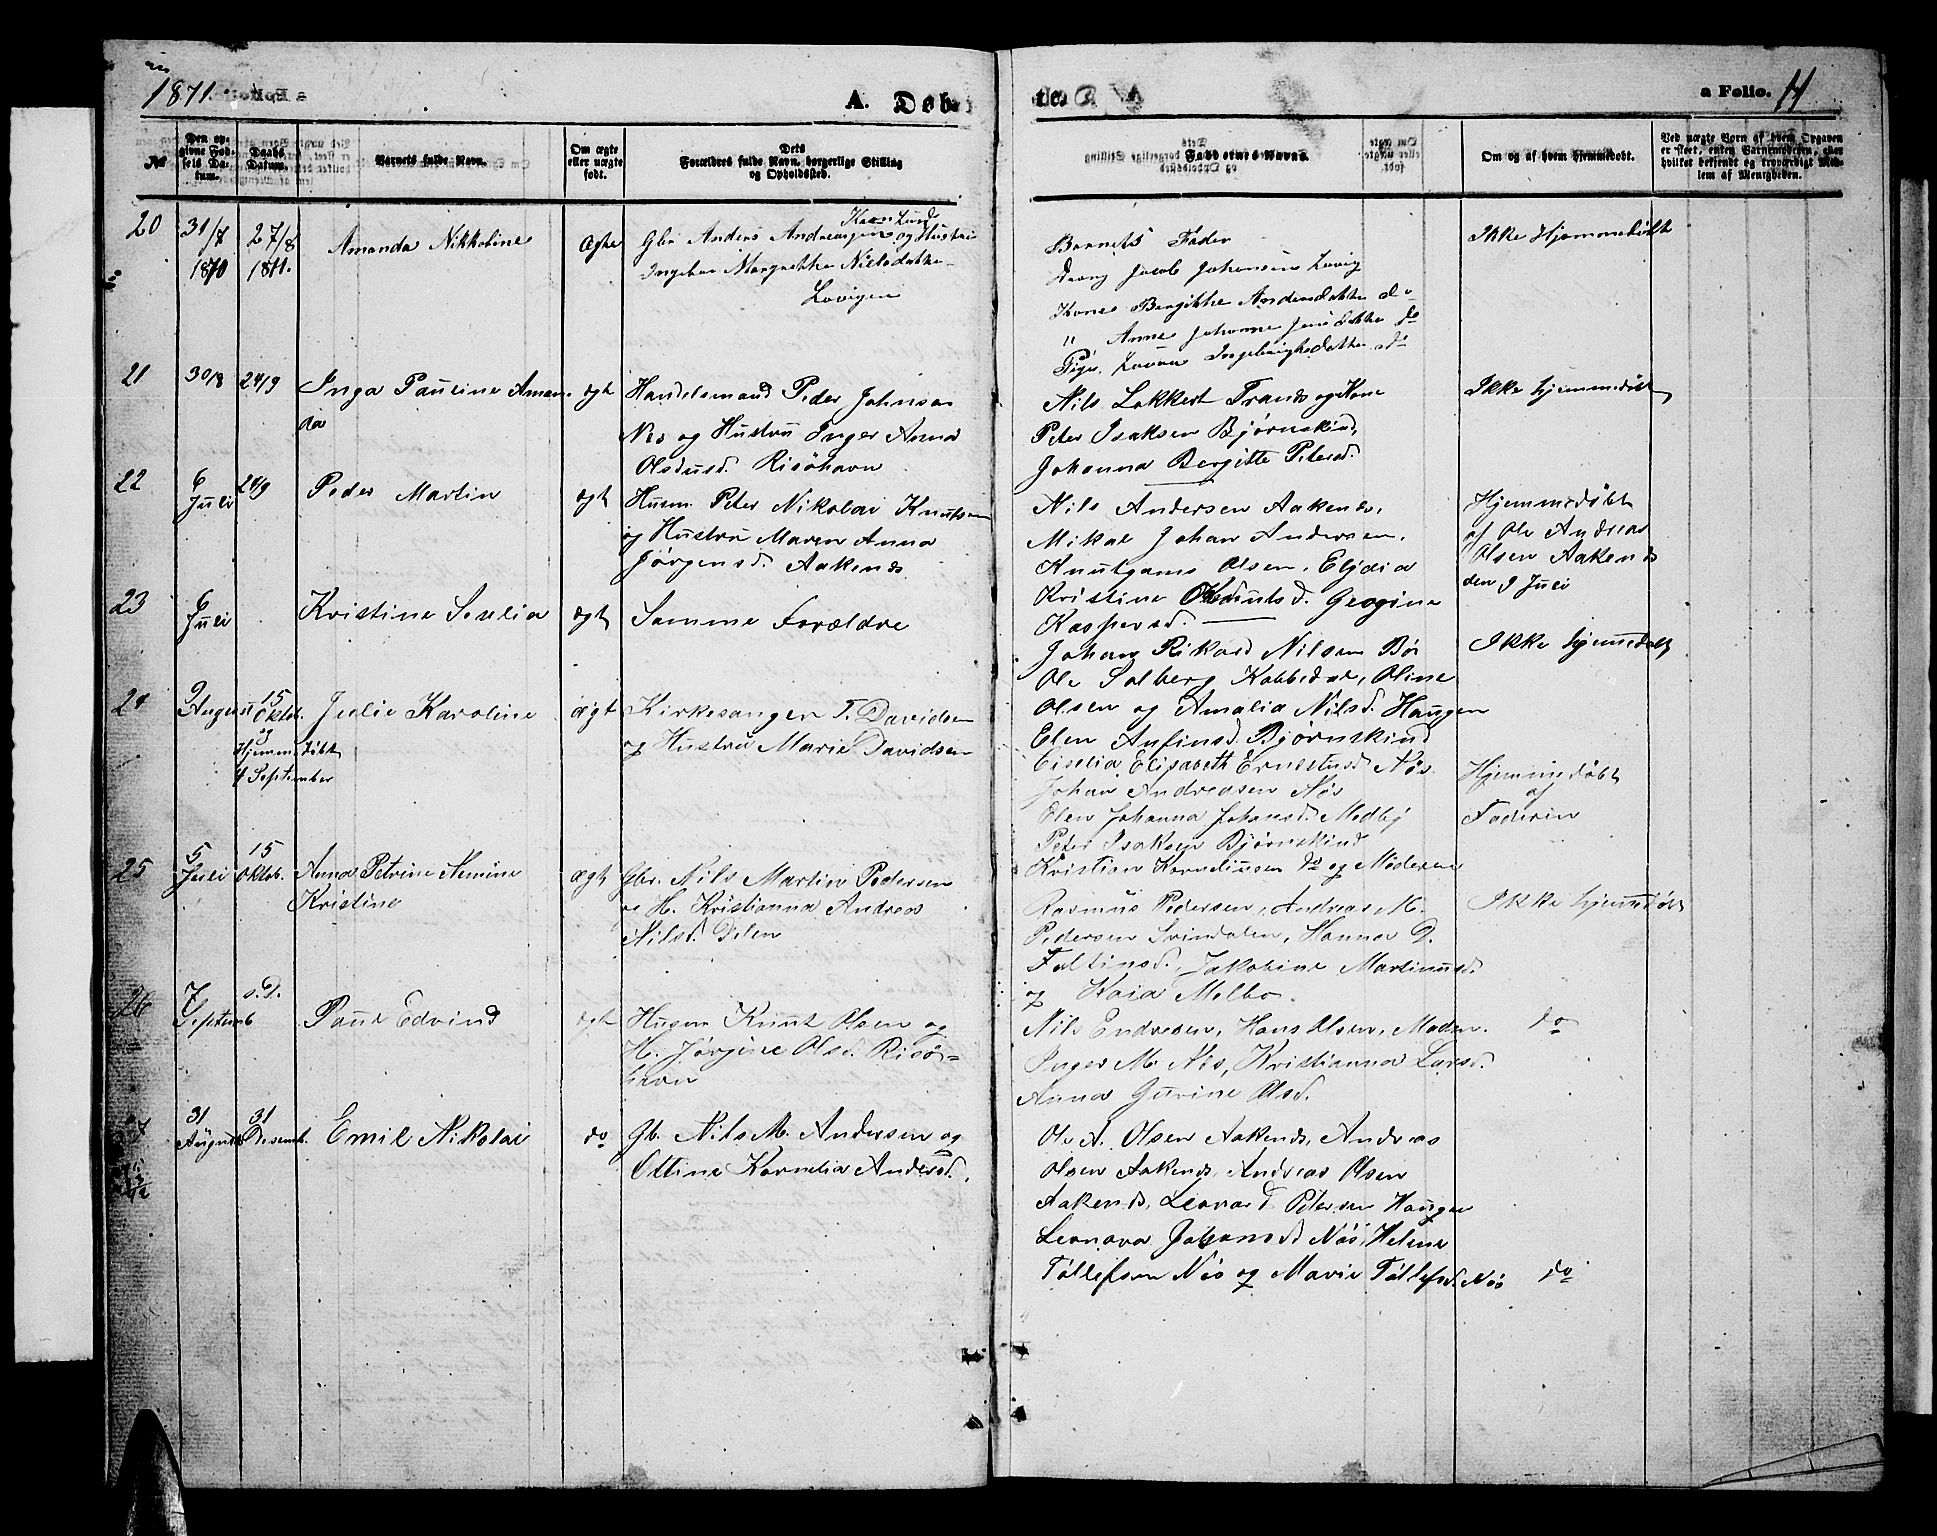 1871.
A. Døb-
te.
a Folio. 14
No
Den opgivne Fødsels Datum.
Daabs Datum.
Barnets fulde Navn.
Om ægte eller uægte født.
Dets Forældres fulde Navn, borgerlige Stilling og Opholdssted.
Faddernes Navne.
Om og af hvem hjemmedøbt.
Ved uægte Børn af hvem Opgaven er skeet, enten Barnemoderen, eller hvilket bekjendt og troværdigt Medlem af Menigheden.
20
31/7 1870
27/8 1871.
Amanda Nikkoline
Ægte
Gbr Anders Andreassen og Hustru
Ingebor Margrethe Nielsdatter
Lovigen
Barnets Fader
Dreng Jacob Johansen Lovig
Kone Bergitte Andersdatter do
" Anne Johanne Jensdatter do
Pige Lovna Ingebrigtsdatter do
Ikke Hjemmedøbt
21
30/8
24/9
Inga Pauline Aman-
da
ægt
Handelsmand Peder Johnsen
Nes og Hustru Inger Anna
Olsdusd. Risøhavn
Nils Lokkert Trands og Kone
Peter Isaksen Bjørnskind,
Johanna Bergitte Petersd.
Ikke hjemmedøbt
22
6 Juli
24/9
Peder Martin
ægt
Husm. Peter Nikolai Knutsen
og Hustru Maren Anna
Jørgensd. Aakends
Nils Andersen Aakends,
Mikal Johan Andersen,
Knut Olsen, Elydia
Kristine Knutsd. Geogine
Kaspersd.
Hjemmedøbt
af Ole Andreas
Olsen Aakends
den 9 Juli
23
6 Juli
Kristine Seselia
ægt
Samme Forældre
Johan Rikard Nilsen Bø
Ole Solberg Kobbedal, Oline
Olsen og Amalia Nilsd. Haugen
Elen Anfinsd. Bjørnskind
Ikke hjemmedøbt
24
9 August
15 Oktob.
og
Hjemmedøbt
4 September
Julie Karoline
ægt
Kirkesanger T. Davidsen
og Hustru Marie Davidsen
Ciselia Elisabeth Ernestusd Nøs
Johan Andreasen Nøs
Elen Johanna Johansd. Medby
Peter Isaksen Bjørnskind
Kristian Korneliusen do og Moderen
Hjemmedøbt
af
Faderen
25
5 Juli
15 Oktob.
Anna Petrine Nemine
Kristine
ægt
Gbr. Nils Martin Pedersen
og H. Kristianna Andrea
Nilsd. Dalen
Rasmus Pedersen, Andreas M.
Pedersen Svindalen, Hanna D.
Faltinsd., Jakobine Martinusd.
og Kaia Melbo.
Ikke hjemmedøbt
26
7 Septemb
s.D.
Paul Edvind
ægt
Husm Knut Olsen og
H. Jørgine Olsd. Risø-
havn
Nils Endresen, Hans Olsen, Madm.
Inger M. Nøs, Kristianna Larsd.
Anna Gurine Olsd.
do
27
31 August
31 Desemb.
Emil Nikolai
do
Gb. Nils M. Andersen og
Ottine Kornelia Andersd.
Ole A. Olsen Aakends, Andreas
Olsen Aakends, Andreas Olsen
Aakends, Leonard Petersen Haugen
Leonora Johansd Nøs, Helene
Tollefsen Nøs og Marie Tollefsd. Nøs
do